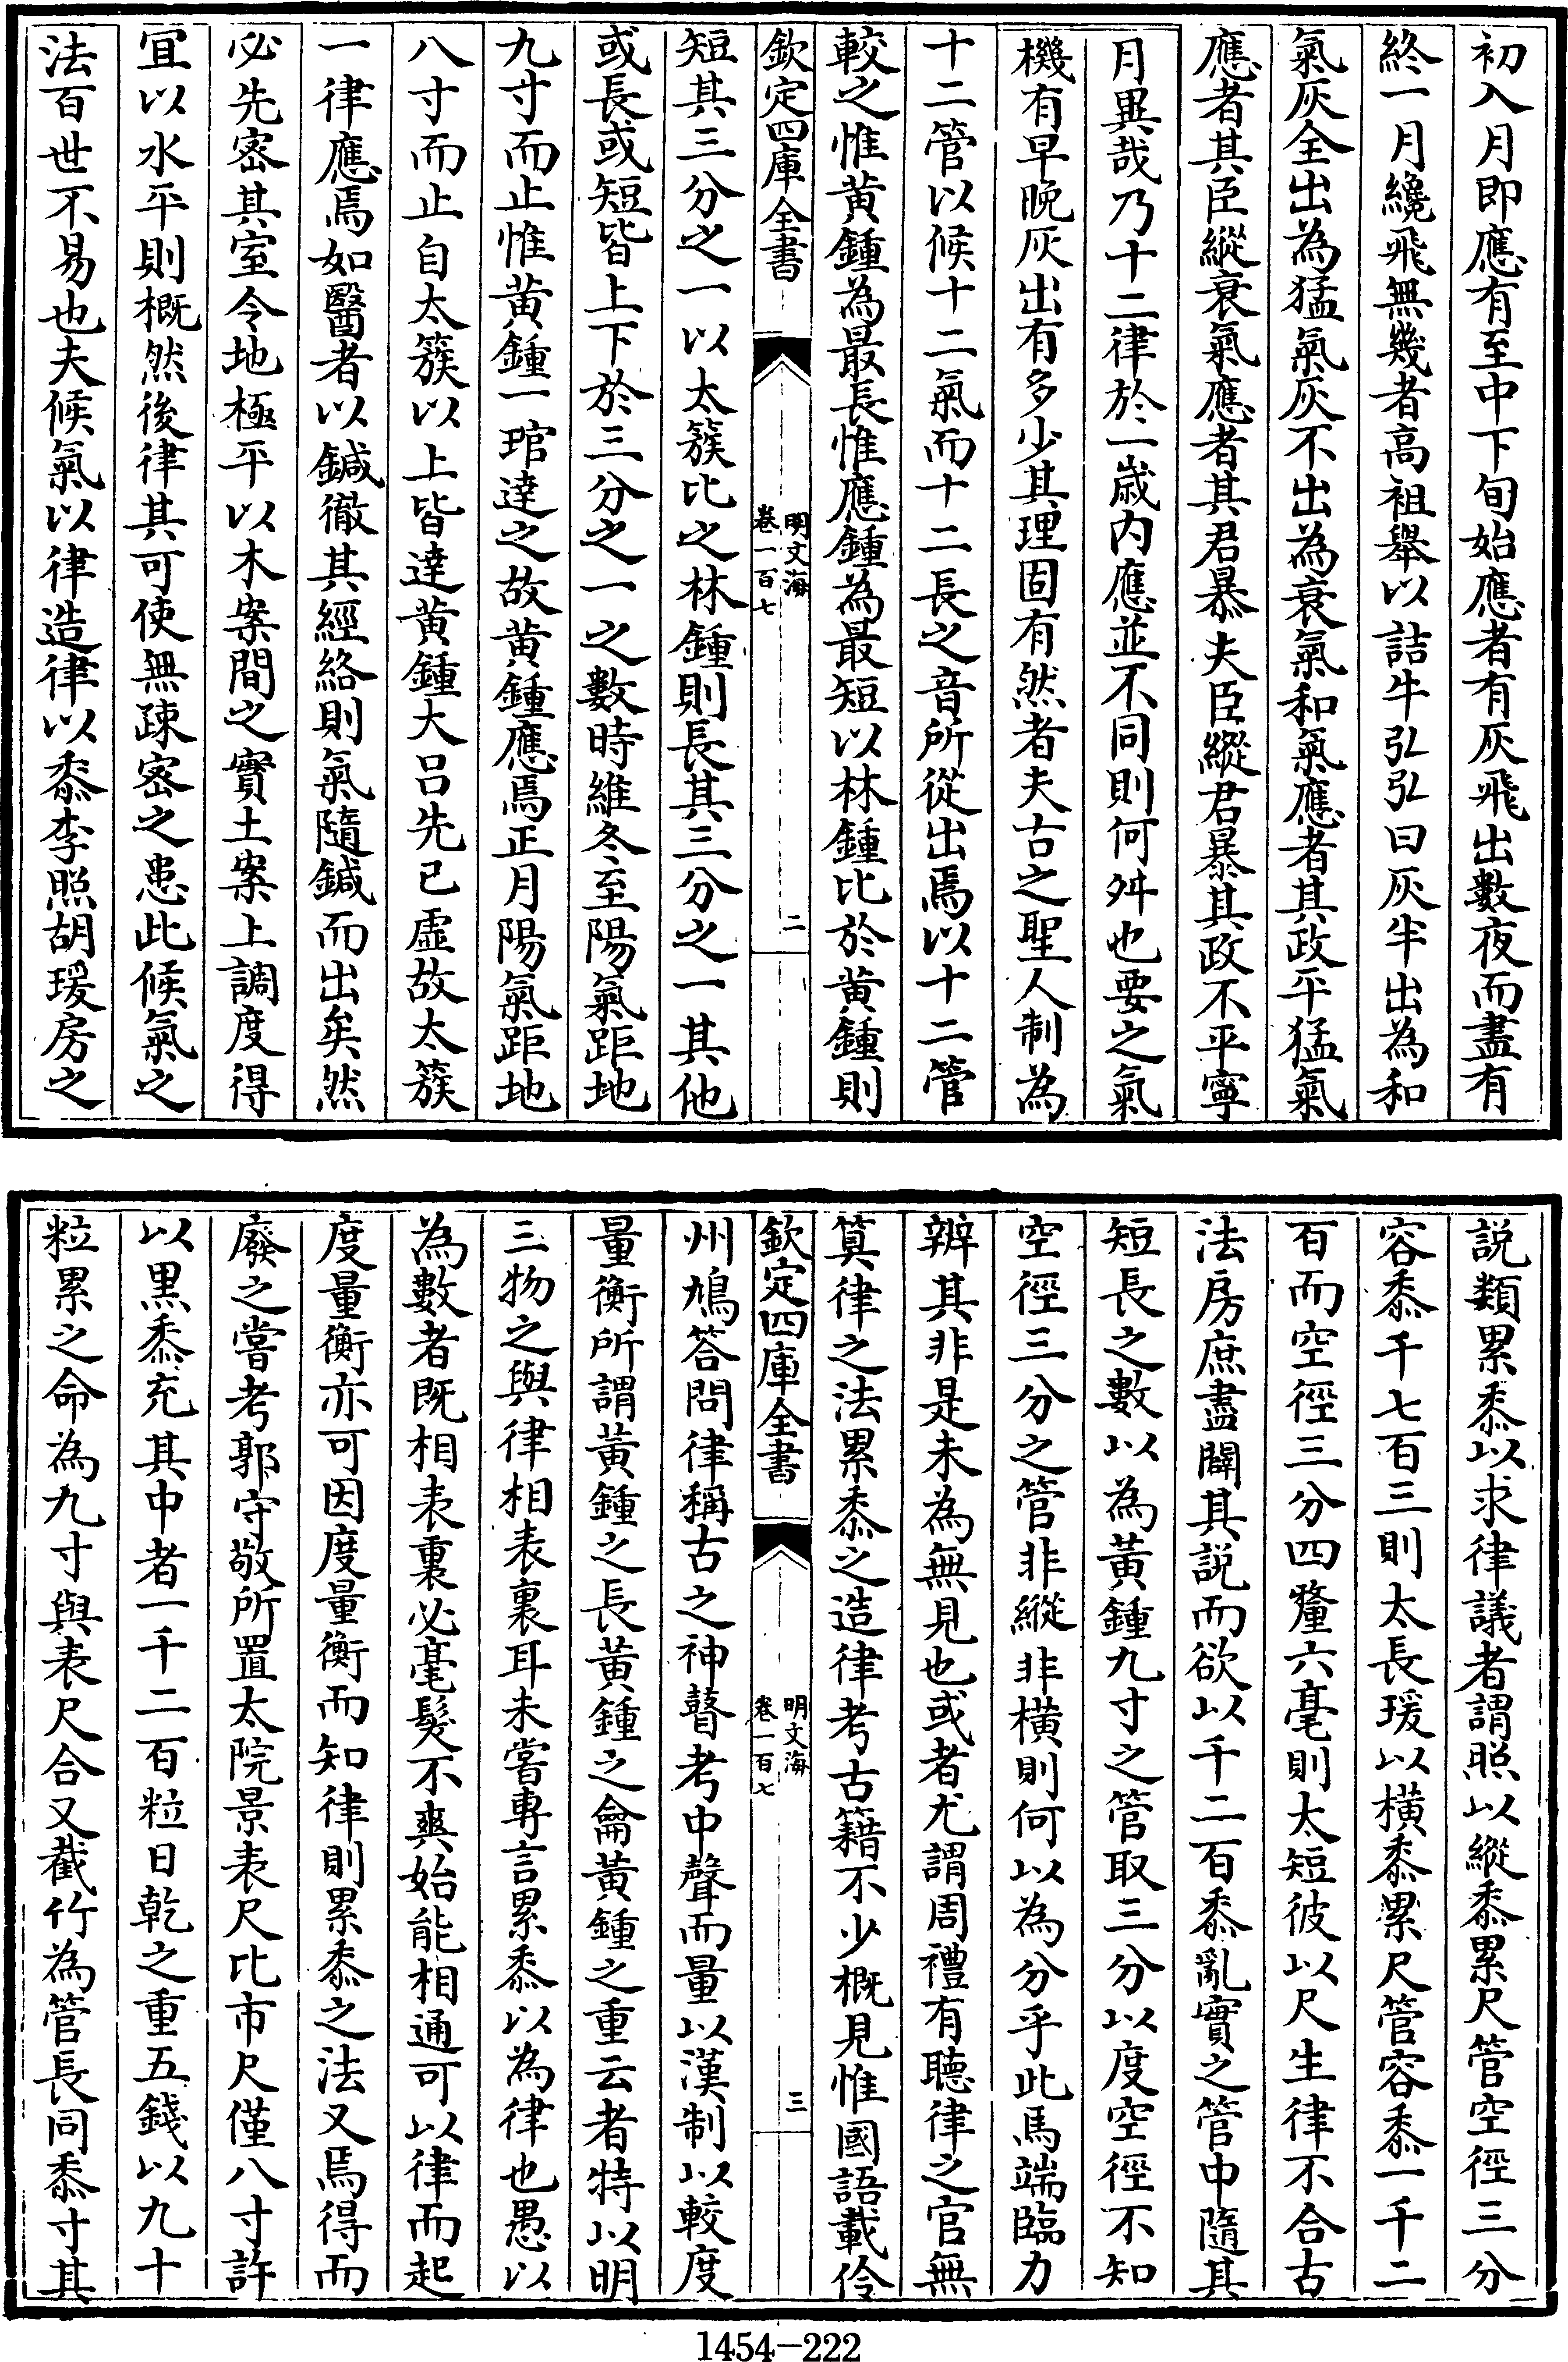 初入月即應有至中下旬始應者有灰飛出數夜而盡有
終一月纔飛無幾者高祖舉以詰牛弘弘曰灰半出為和
氣灰全出為猛氣灰不出為衰氣和氣應者其政平猛氣
應者其臣縱衰氣應者其君暴夫臣縱君暴其政不平寧
月異哉乃十二律於一歲内應並不同則何舛也要之氣
機有早晚灰出有多少其理固有然者夫古之聖人制為
十二管以候十二氣而十二長之音所從出焉以十二管
較之惟黃鍾為最長惟應鍾為最短以林鍾比於黃鍾則
欽定四庫全書
明文海
卷一百七
二
短其三分之一以太簇比之林鍾則長其三分之一其他
或長或短皆上下於三分之一之數時維冬至陽氣距地
九寸而止惟黃鍾一琯達之故黃鍾應焉正月陽氣距地
八寸而止自太簇以上皆達黃鍾大呂先已虛故太簇
一律應焉如醫者以鍼徹其經絡則氣隨鍼而出矣然
必先密其室令地極平以木案間之實土案上調度得
宜以水平則概然後律其可使無疎密之患此候氣之
法百世不易也夫候氣以律造律以黍李照胡瑗房之
說類累黍以求律議者謂照以縱黍累尺管空徑三分
容黍千七百三則太長瑗以橫黍累尺管容黍一千二
百而空徑三分四釐六毫則太短彼以尺生律不合古
法房庶盡闢其說而欲以千二百黍亂實之管中隨其
短長之數以為黃鍾九寸之管取三分以度空徑不知
空徑三分之管非縱非橫則何以為分乎此馬端臨力
辨其非是未為無見也或者尤謂周禮有聽律之官無
算律之法累黍之造律考古籍不少概見惟國語載伶
欽定四庫全書
明文海
卷一百七
三
州鳩答問律稱古之神瞽考中聲而量以漢制以較度
量衡所謂黃鍾之長黃鍾之龠黃鍾之重云者特以明
三物之與律相表裏耳未嘗專言累黍以為律也愚以
為數者既相表裏必毫髮不爽始能相通可以律而起
度量衡亦可因度量衡而知律則累黍之法又焉得而
廢之嘗考郭守敬所置太院景表尺比市尺僅八寸許
以黑黍充其中者一千二百粒日乾之重五錢以九十
粒累之命為九寸與表尺合又截竹為管長同黍寸其
1454-222